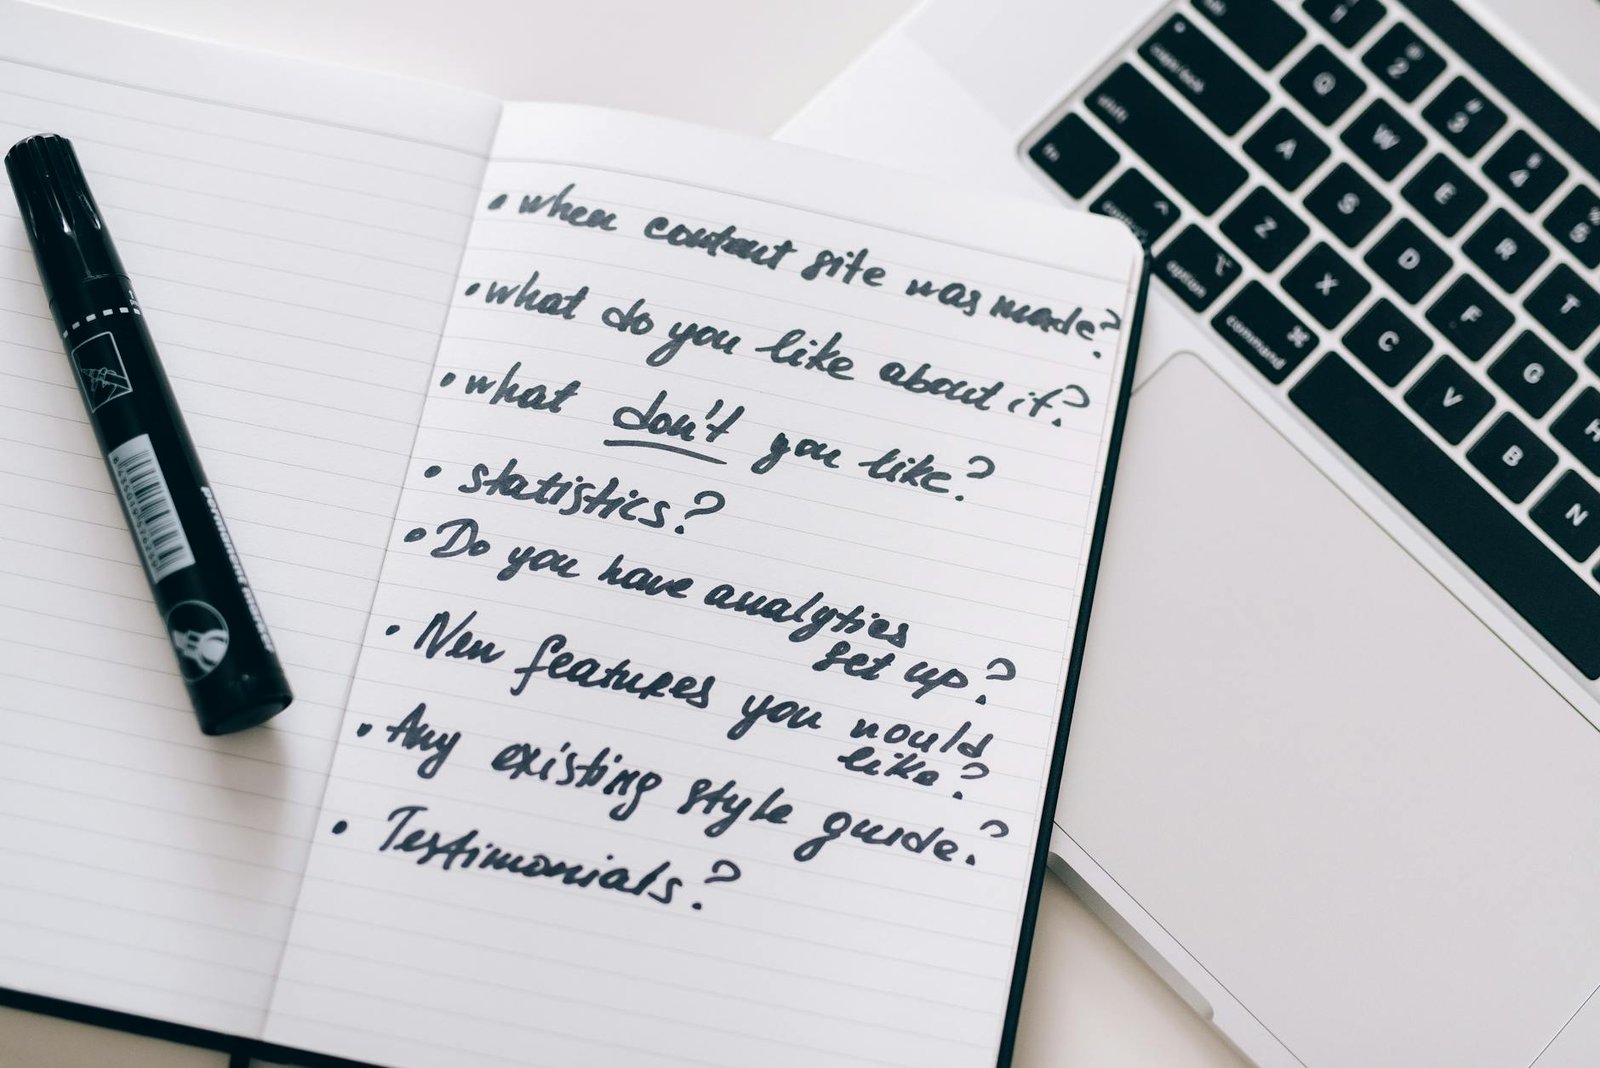 • when content site was made?
• what do you like about it?
• what don't you like?
• statistics?
• Do you have analytics
set up?
• New features you would
like?
• Any existing style guide?
• Testimonials?
permanent marker
1 2 3 4 5
Q W E R T
caps lock A S D F G H
shift Z X C V B N
fn control option command